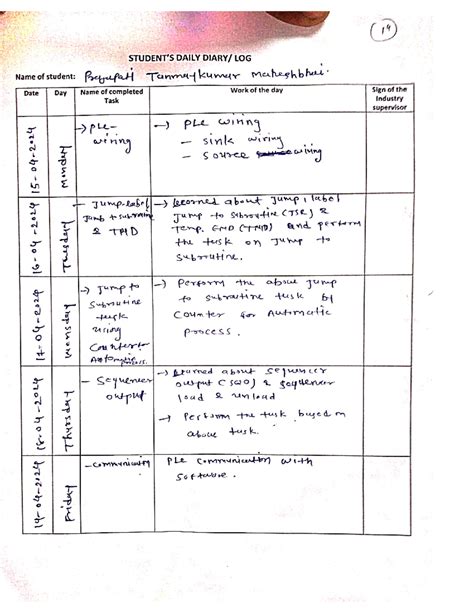 14
STUDENT'S DAILY DIARY/ LOG
Name of student: Tanmaykumar Maheshbhai.
Date Day Name of completed Task Work of the day Sign of the Industry supervisor
15-04-2024 Monday
→ PLC-
wiring
→ PLC wiring
- sink wiring
- source wiring
16-04-2024 Tuesday
- Jump-label
Jump to subroutine
& TMD
→ Learned about Jump, label
Jump to Subroutine (JSR) &
Temp. END (TMD) and perform
the task on Jump to
Subroutine.
17-04-2024
→ Jump to
Subroutine
task
using
Counter for
Automatic
process.
→ Perform the above Jump
to subroutine task by
Counter for Automatic
process.
18-04-2024 Thursday
- Sequencer
output
→ learned about sequencer
output (SQO) & sequencer
load & unload
→ Perform the task based on
above task.
19-04-2024 Friday
- communication
PLC communication with
software.